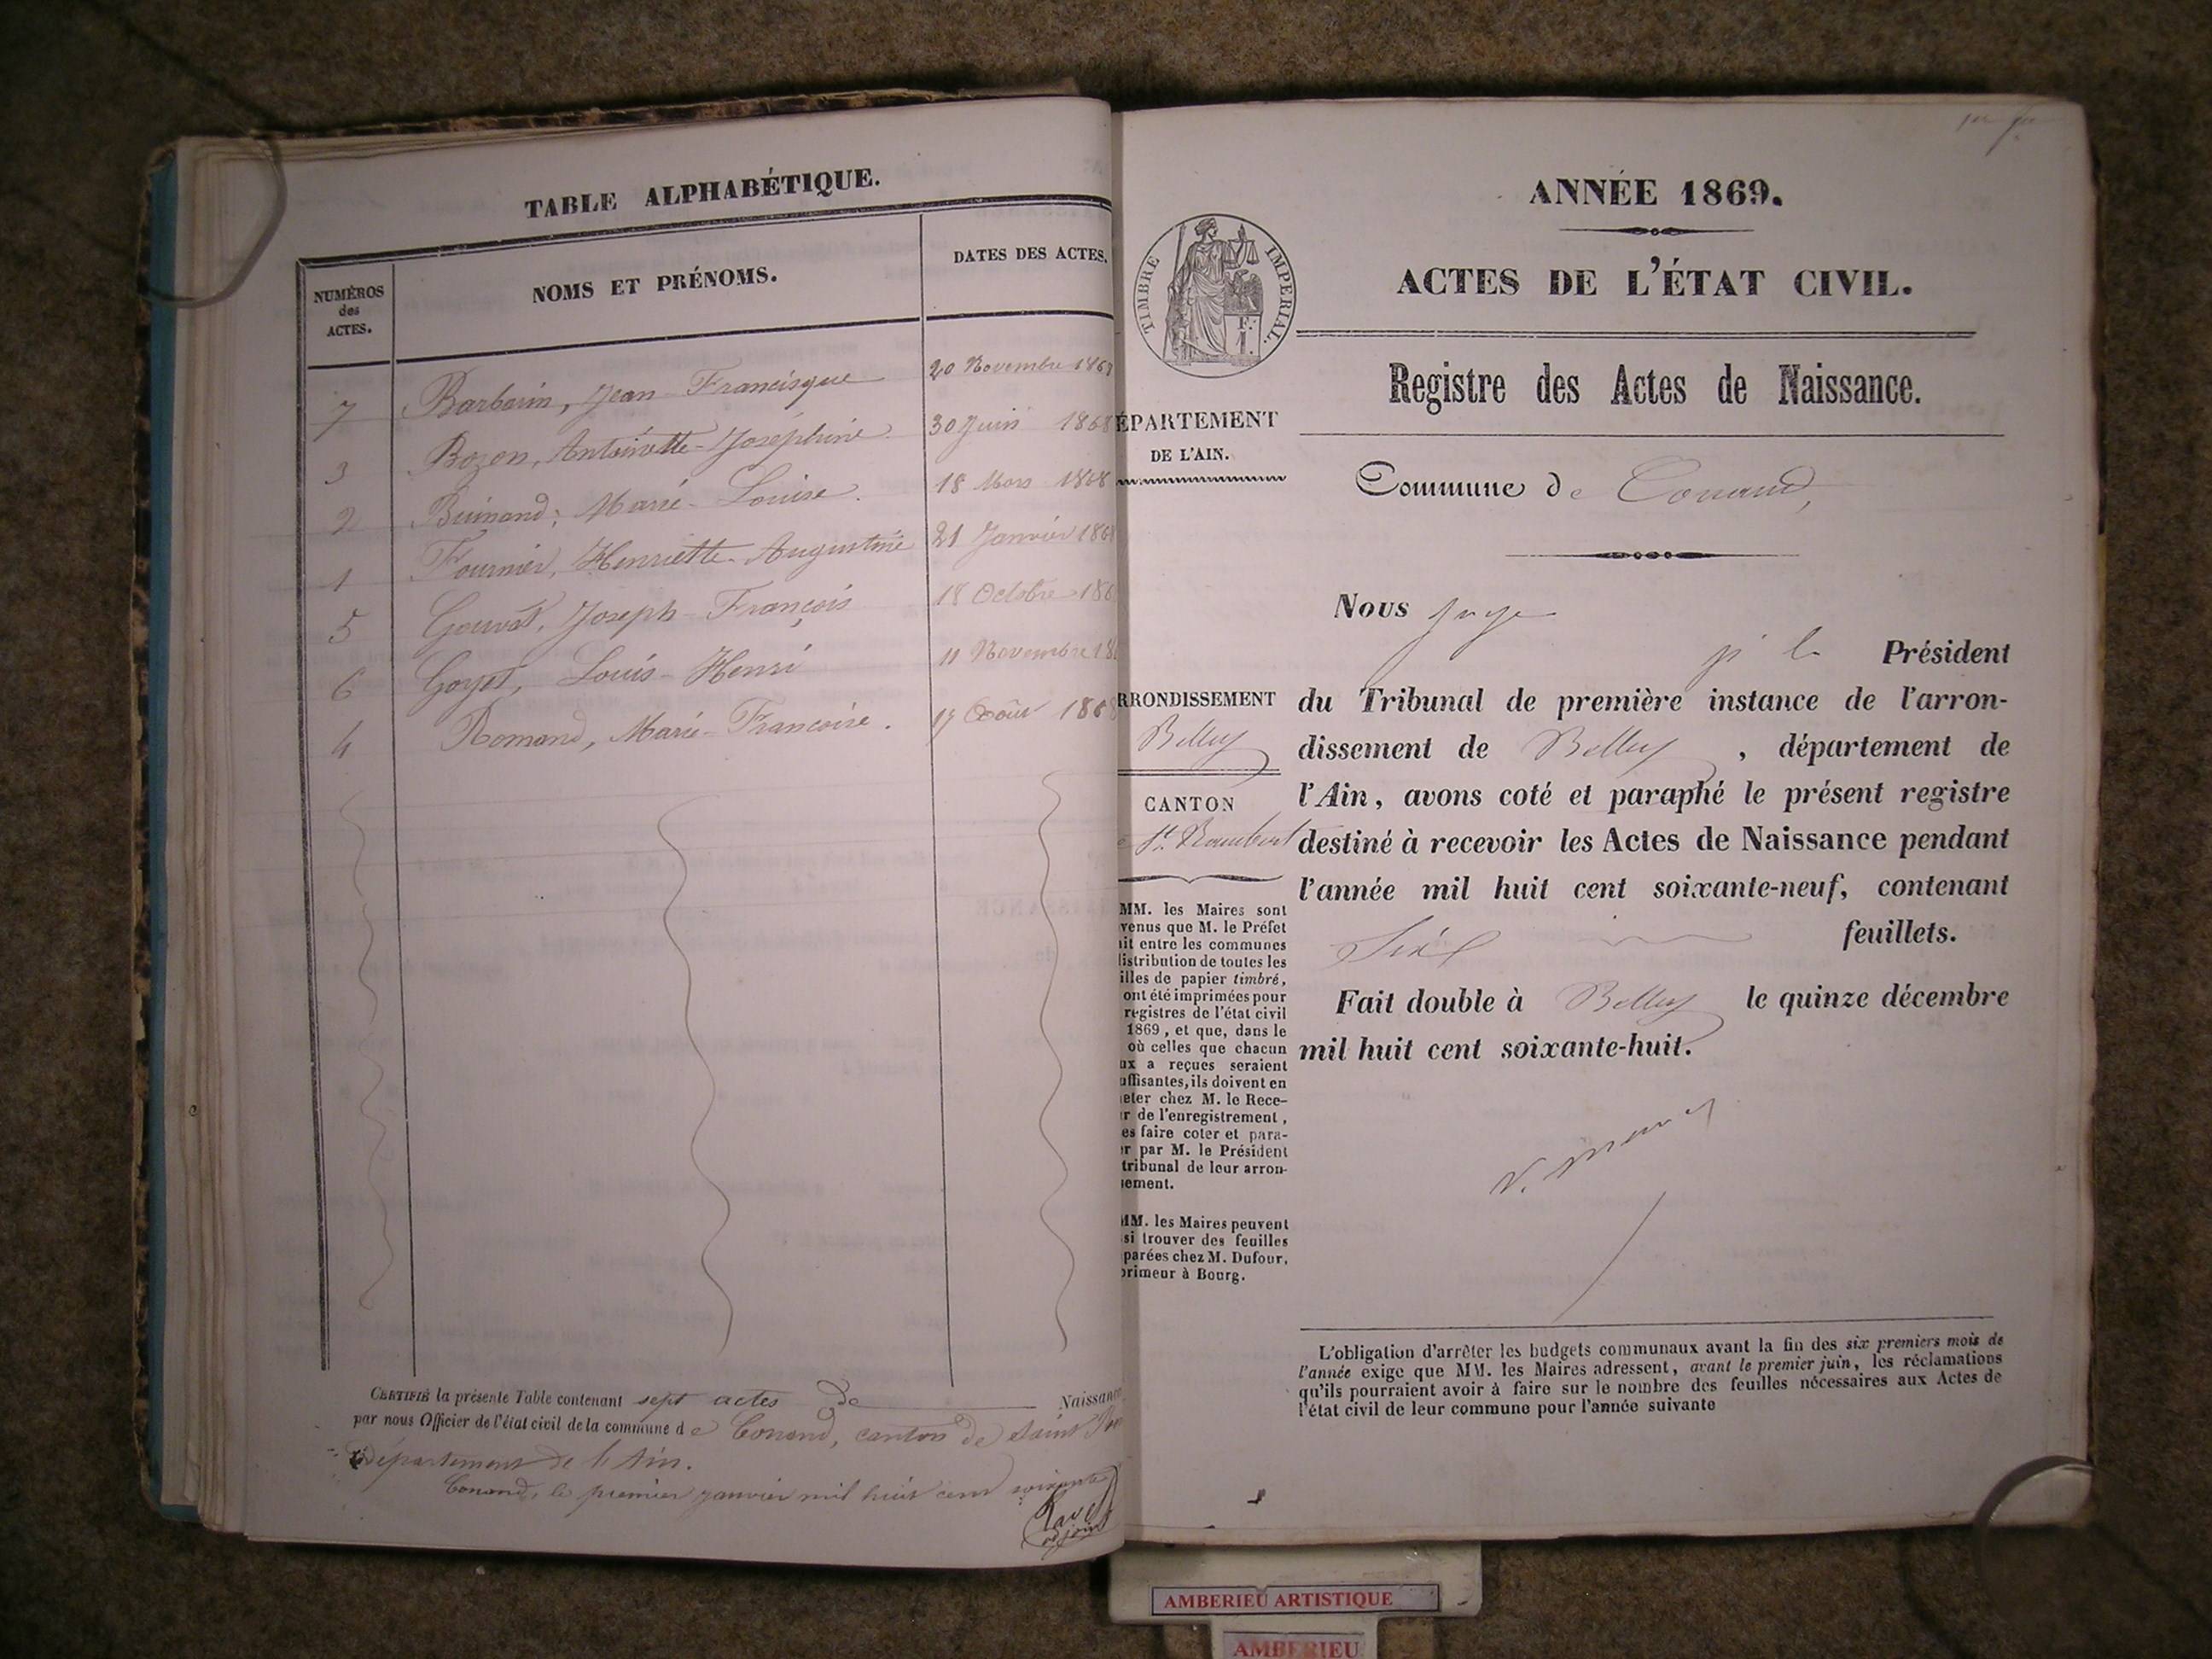 TABLE ALPHABÉTIQUE.
NUMÉROS
des
ACTES.
NOMS ET PRÉNOMS.
DATES DES ACTES.
7 Barbarin, Jean-Francisque 20 Novembre 1868
3 Bozon, Antoinette-Joséphine. 30 Juin 1868
2 Buinand, Marie-Louise. 18 Mars 1868
1 Fournier, Henriette-Augustine 21 Janvier 1868
5 Joseph-François 18 Octobre 186
6 Goyet, Louis-Henri 11 Novembre 18
4 Romand, Marie-Françoise. Août 1868
CERTIFIÉ la présente Table contenant sept actes de Naissance
par nous Officier de l'état civil de la commune de Conand, canton de Saint
Département de l'Ain.
Conand, le premier janvier mil huit cent soixante
adjoint
ANNÉE 1869.
ACTES DE L'ÉTAT CIVIL.
TIMBRE IMPERIAL.
Registre des Actes de Naissance.
ÉPARTEMENT
DE L'AIN.
Commune de Conand,
Nous juge
Président
RRONDISSEMENT
Belley
du Tribunal de première instance de l'arron-
dissement de Belley, département de
l'Ain, avons coté et paraphé le présent registre
destiné à recevoir les Actes de Naissance pendant
l'année mil huit cent soixante-neuf, contenant
feuillets.
Fait double à Belley le quinze décembre
mil huit cent soixante-huit.
CANTON
St. Rambert
MM. les Maires sont
venus que M. le Préfet
ait entre les communes
distribution de toutes les
illes de papier timbré,
ont été imprimées pour
registres de l'état civil
1869, et que, dans le
où celles que chacun
ux a reçues seraient
uffisantes, ils doivent en
eter chez M. le Rece-
r de l'enregistrement,
es faire coter et para-
er par M. le Président
tribunal de leur arron-
sement.
MM. les Maires peuvent
si trouver des feuilles
parées chez M. Dufour,
primeur à Bourg.
L'obligation d'arrêter les budgets communaux avant la fin des six premiers mois de
l'année exige que MM. les Maires adressent, avant le premier juin, les réclamations
qu'ils pourraient avoir à faire sur le nombre des feuilles nécessaires aux Actes de
l'état civil de leur commune pour l'année suivante
AMBERIEU ARTISTIQUE
AMBERIEU